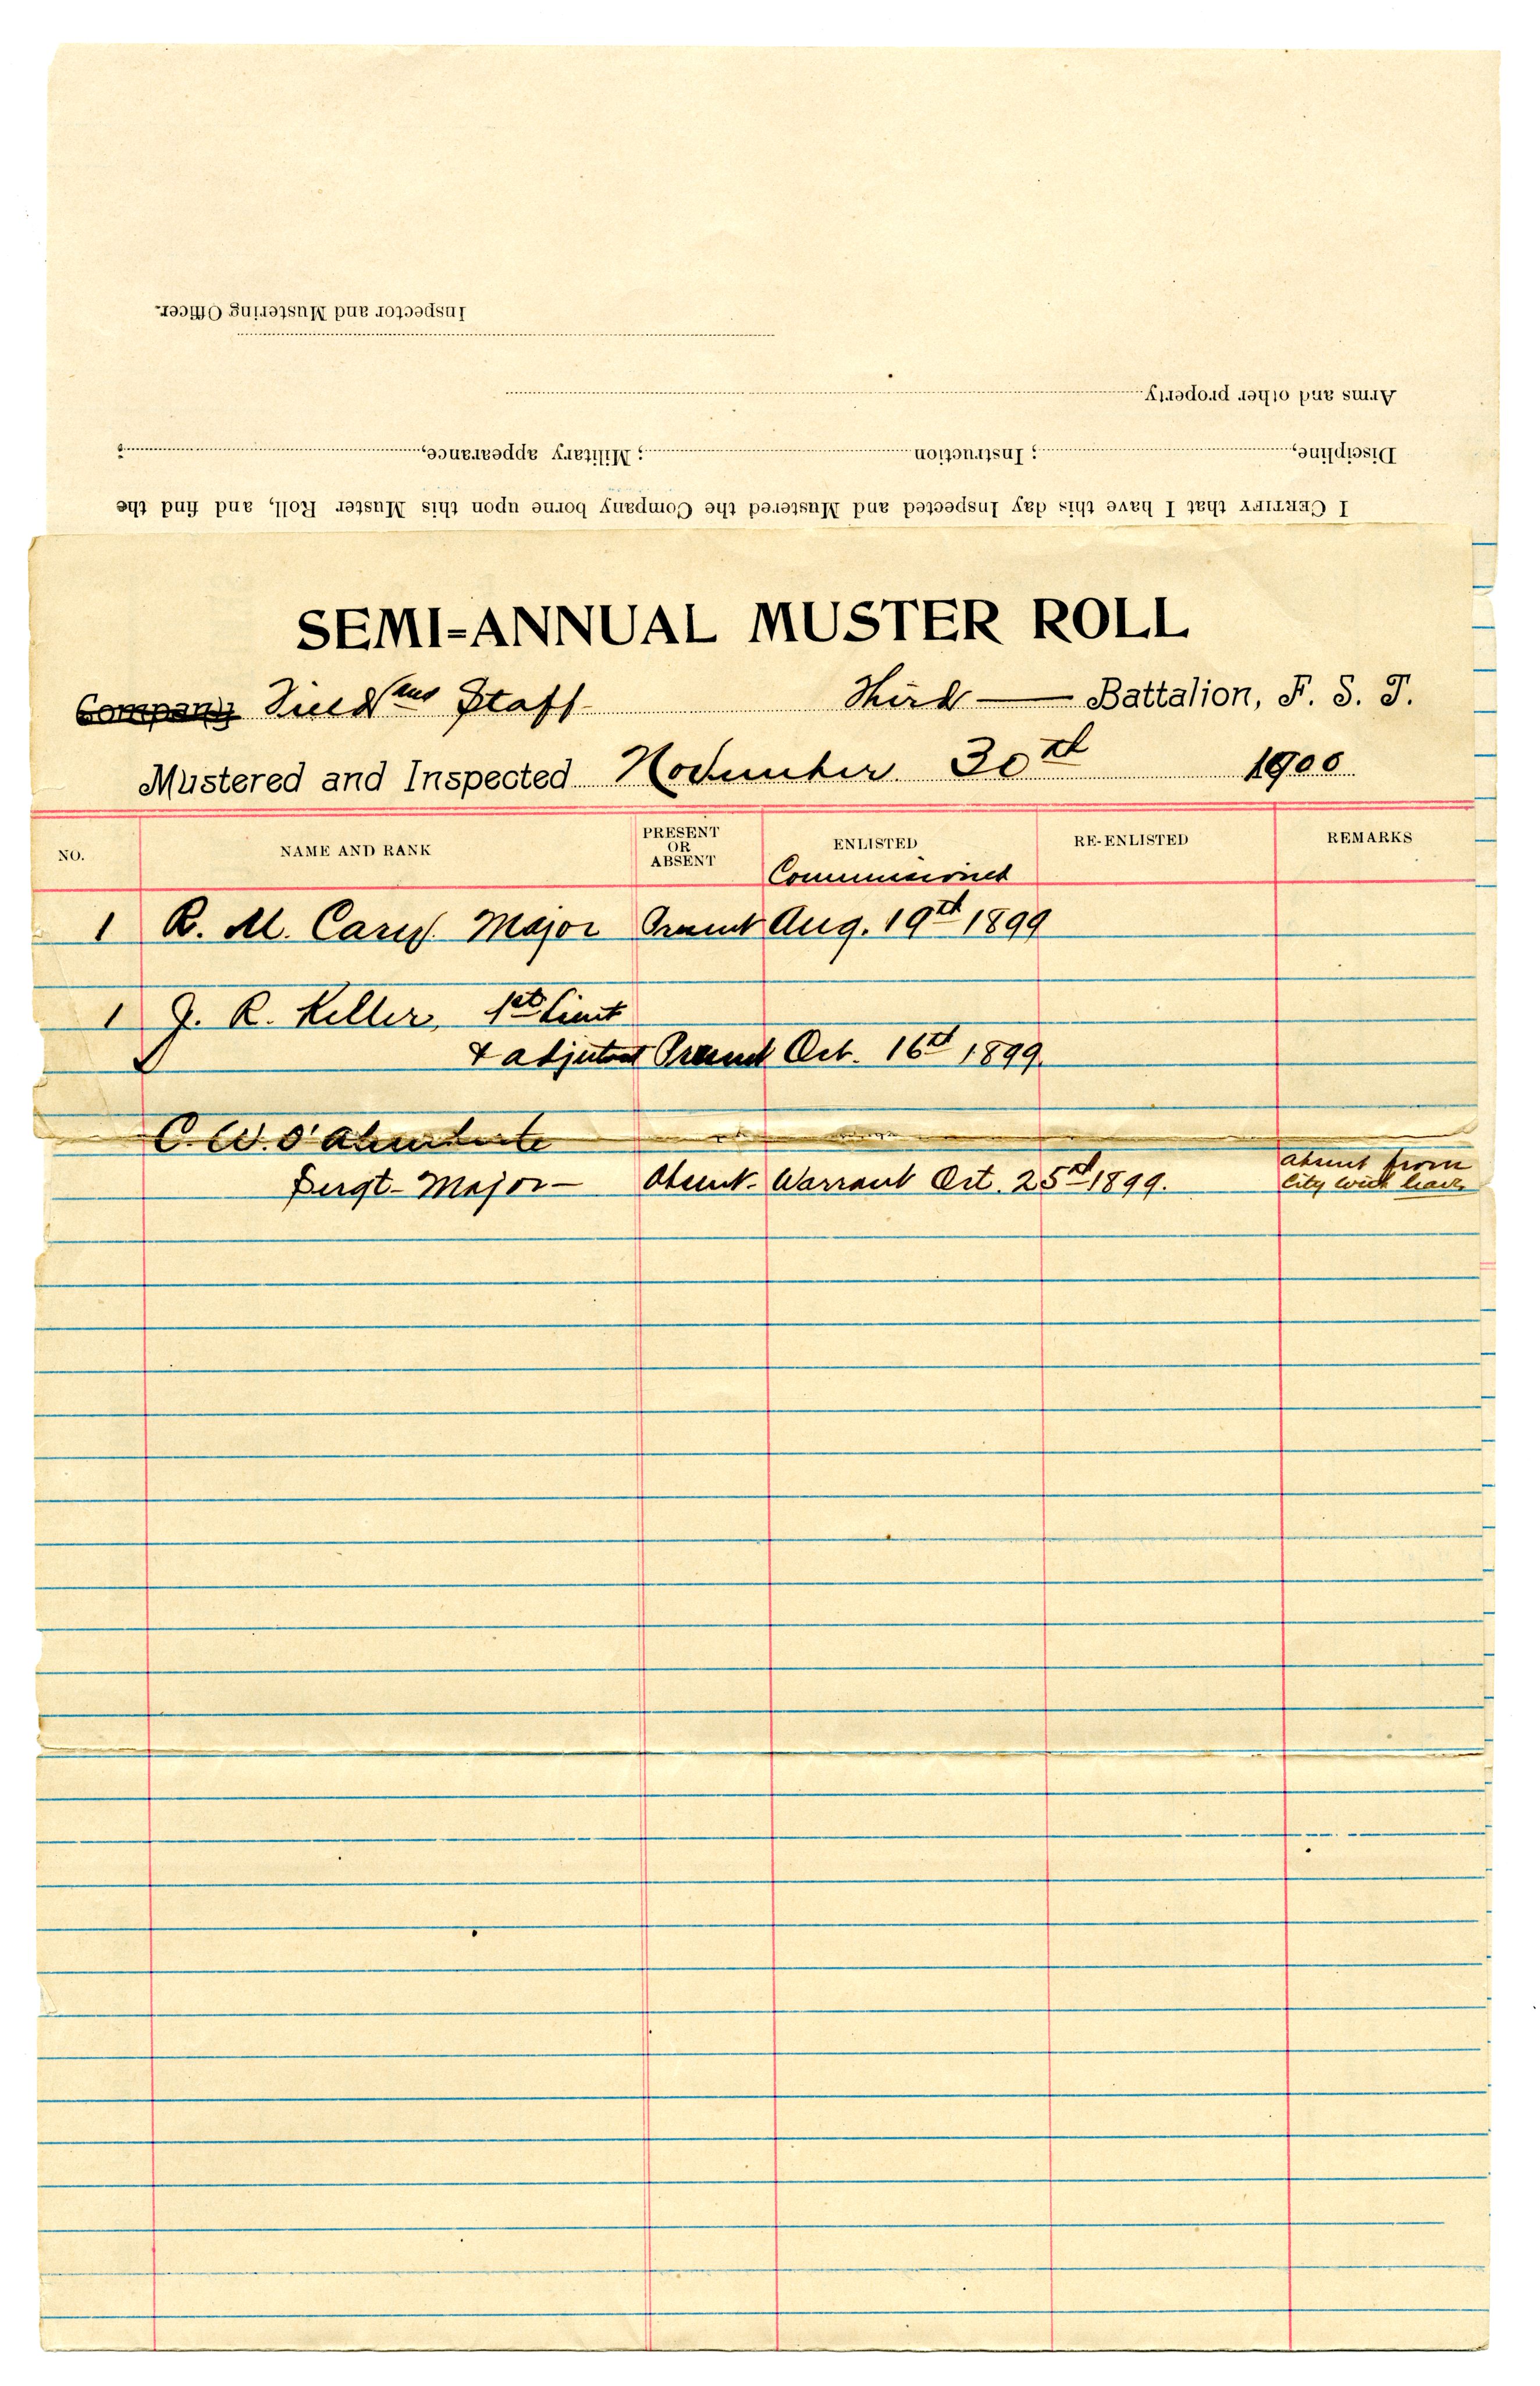 Inspector and Mustering Officer.
Arms and other property
Discipline, ; Instruction ; Military appearance, ;
I CERTIFY that I have this day Inspected and Mustered the Company borne upon this Muster Roll, and find the
SEMI-ANNUAL MUSTER ROLL
Company Field and Staff Third Battalion, F. S. T.
Mustered and Inspected November 30th 1900
NO. NAME AND RANK PRESENT OR ABSENT ENLISTED RE-ENLISTED REMARKS
Commissioned
1 R. M. Cary Major Present Aug. 19th 1899
1 J. R. Keller, 1st Lieut
& adjutant Present Oct. 16th 1899.
C. W. D'Alemberte
Sergt-Major- Absent- Warrant Oct. 25th 1899. absent from
city with leave